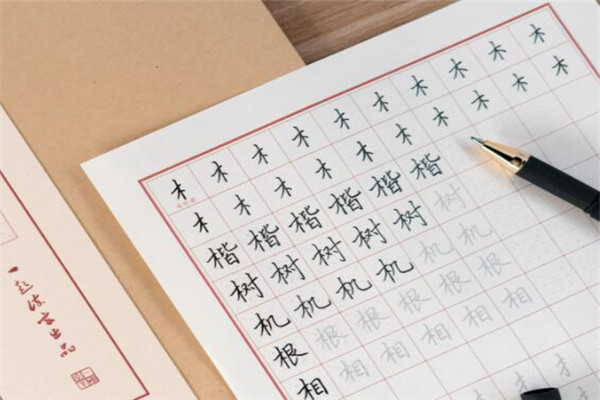 木木木木木木木木木木
木木木木木木木木木木
楷楷楷楷楷楷
树树树树树树
机机机机机机
根根根根根根
相相相相相相
扌扌
一起练字出品